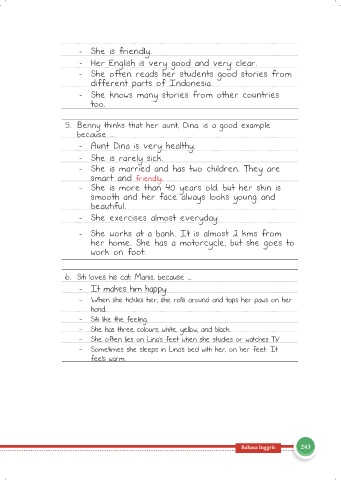 - She is friendly.
- Her English is very good and very clear.
- She often reads her students good stories from
different parts of Indonesia.
- She knows many stories from other countries
too.
5. Benny thinks that her aunt, Dina, is a good example
because ....
- Aunt Dina is very healthy.
- She is rarely sick.
- She is married and has two children. They are
smart and friendly.
- She is more than 40 years old, but her skin is
smooth and her face always looks young and
beautiful.
- She exercises almost everyday.
- She works at a bank. It is almost 2 kms from
her home. She has a motorcycle, but she goes to
work on foot.
6. Siti loves his cat, Manis, because ....
- It makes him happy.
- When she tickles her, she rolls around and taps her paws on her
hand.
- Siti like the feeling.
- She has three colours, white, yellow, and black.
- She often lies on Lina's feet when she studies or watches TV.
- Sometimes she sleeps in Lina's bed with her, on her feet. It
feels warm.
Bahasa Inggris 243